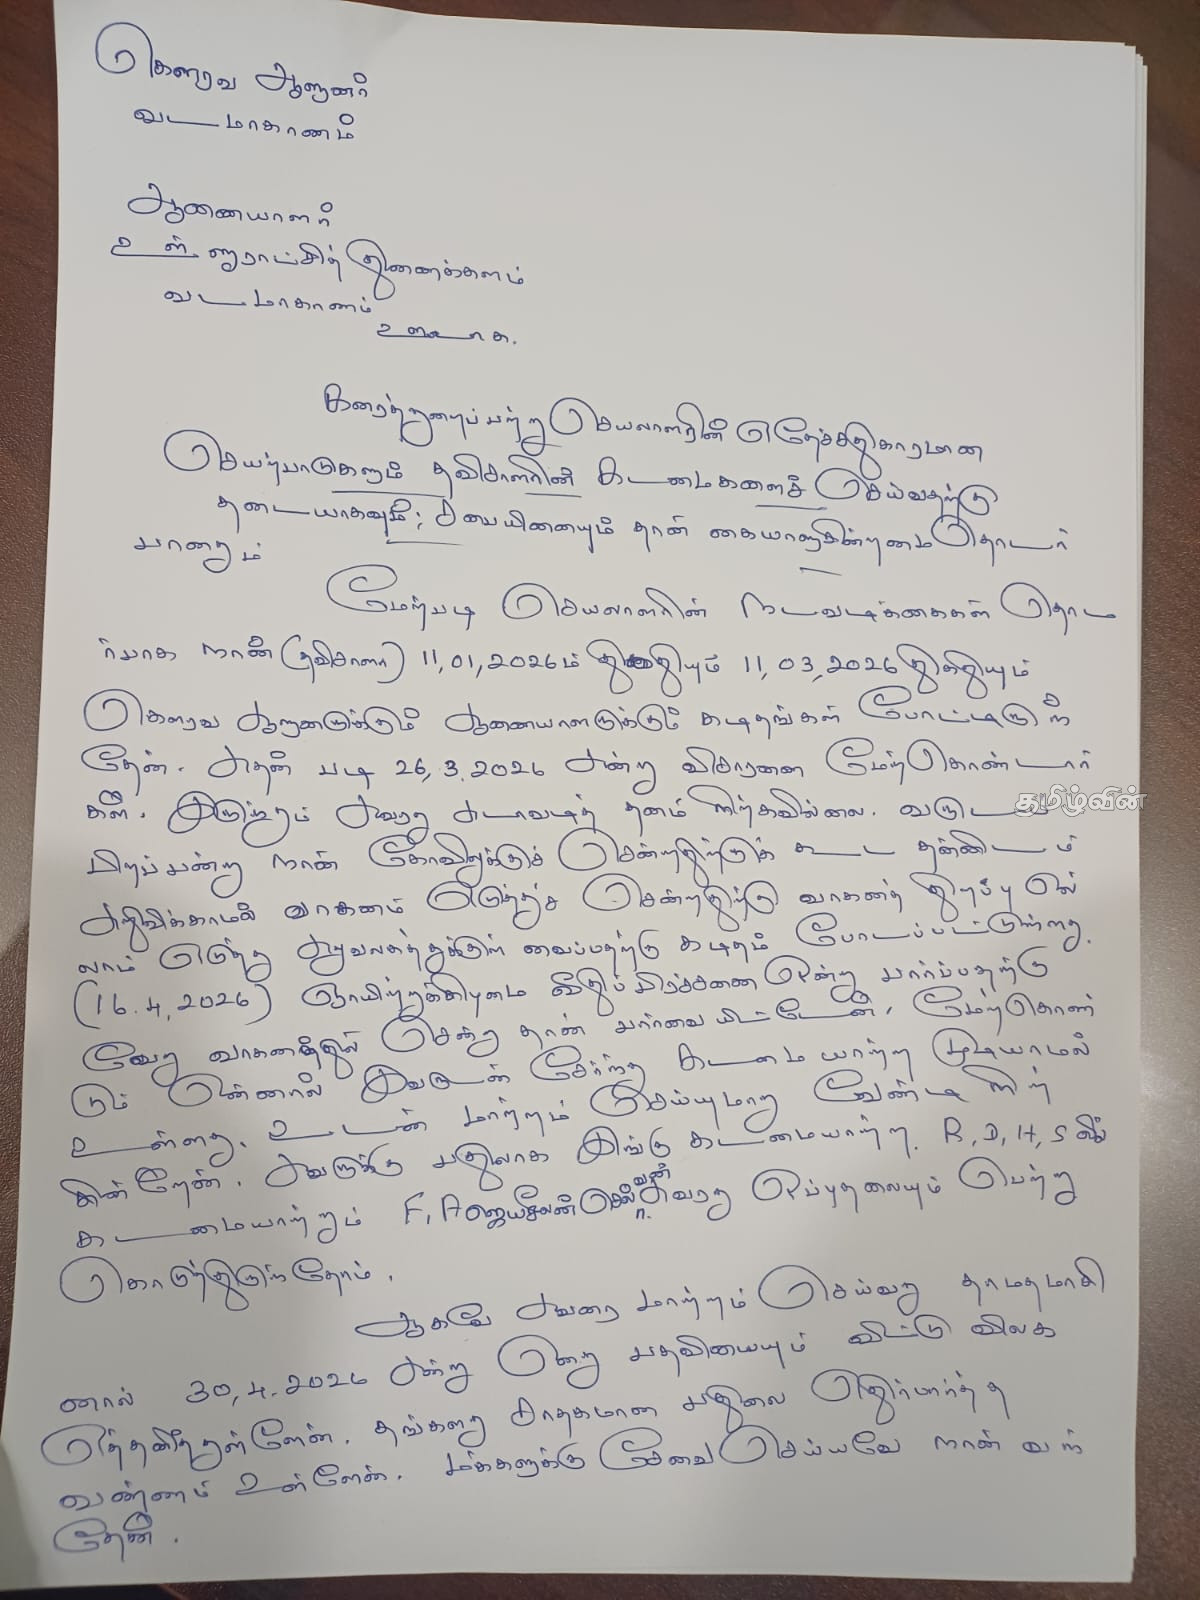 கௌரவ ஆளுனர்
வடமாகாணம்
ஆணையாளர்
உள்ளூராட்சித் திணைக்களம்
வடமாகாணம்
ஊடாக.
கரைத்துறைப்பற்று செயலாளரின் எதேச்சதிகாரமான
செயற்பாடுகளும் தவிசாளரின் கடமைகளைச் செய்வதற்கு
தடையாகவும்; சபையினையும் தான் கையாளுகின்றமை தொடர்
பானதும்
மேற்படி செயலாளரின் நடவடிக்கைகள் தொட
ர்பாக நான் (தவிசாளர்) 11,01,2026ம் திகதியும் 11,03,2026 திகதியும்
கௌரவ ஆளுனருக்கும் ஆணையாளருக்கும் கடிதங்கள் போட்டிருந்
தேன். அதன் படி 26,3.2026 அன்று விசாரணை மேற்கொண்டார்
கள். இருந்தும் அவரது அடாவடித் தனம் நிற்கவில்லை. வருடப்
பிறப்பன்று நான் கோவிலுக்குச் சென்றதற்குக் கூட தன்னிடம்
அறிவிக்காமல் வாகனம் எடுத்துச் சென்றதற்கு வாகனத் திறப்பு எல்
லாம் எடுத்து அலுவலகத்துக்குள் வைப்பதற்கு கடிதம் போடப்பட்டுள்ளது.
(16.4,2026) ஞாயிற்றுக்கிழமை வீதிப் பிரச்சனை ஒன்று பார்ப்பதற்கு
வேறு வாகனத்தில் சென்று தான் பார்வையிட்டேன். மேற்கொண்
டும் என்னால் இவருடன் சேர்ந்து கடமையாற்ற முடியாமல்
உள்ளது. உடன் மாற்றம் செய்யுமாறு வேண்டி நிற்
கின்றேன். அவருக்கு பதிலாக இங்கு கடமையாற்ற R,D,H,S ல்
கடமையாற்றும் F,A ஜெயசீலன் அவரது ஒப்புதலையும் பெற்று
கொடுத்திருந்தோம்.
ஆகவே அவரை மாற்றம் செய்வது தாமதமாகி
னால் 30,4.2026 அன்று எனது பதவியையும் விட்டு விலக
எத்தனித்துள்ளேன். தங்களது சாதகமான பதிலை எதிர்பார்த்த
வண்ணம் உள்ளேன். மக்களுக்கு சேவை செய்யவே நான் வந்
தேன்.
தமிழ்வின்